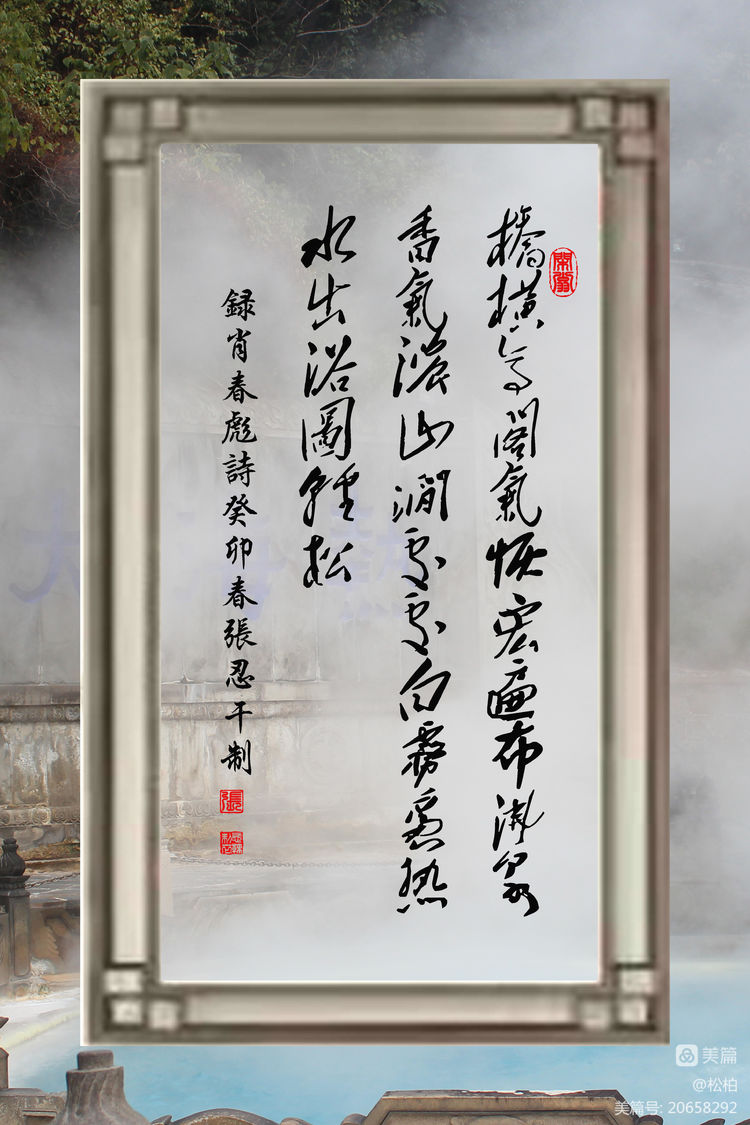 橋橫亭閣氣恢宏遍布泉
香氣濃山澗處處白霧熱
水出浴圖輕松
録肖春彪詩癸卯春張忍干制
張
美篇
@松柏
美篇号: 20658292